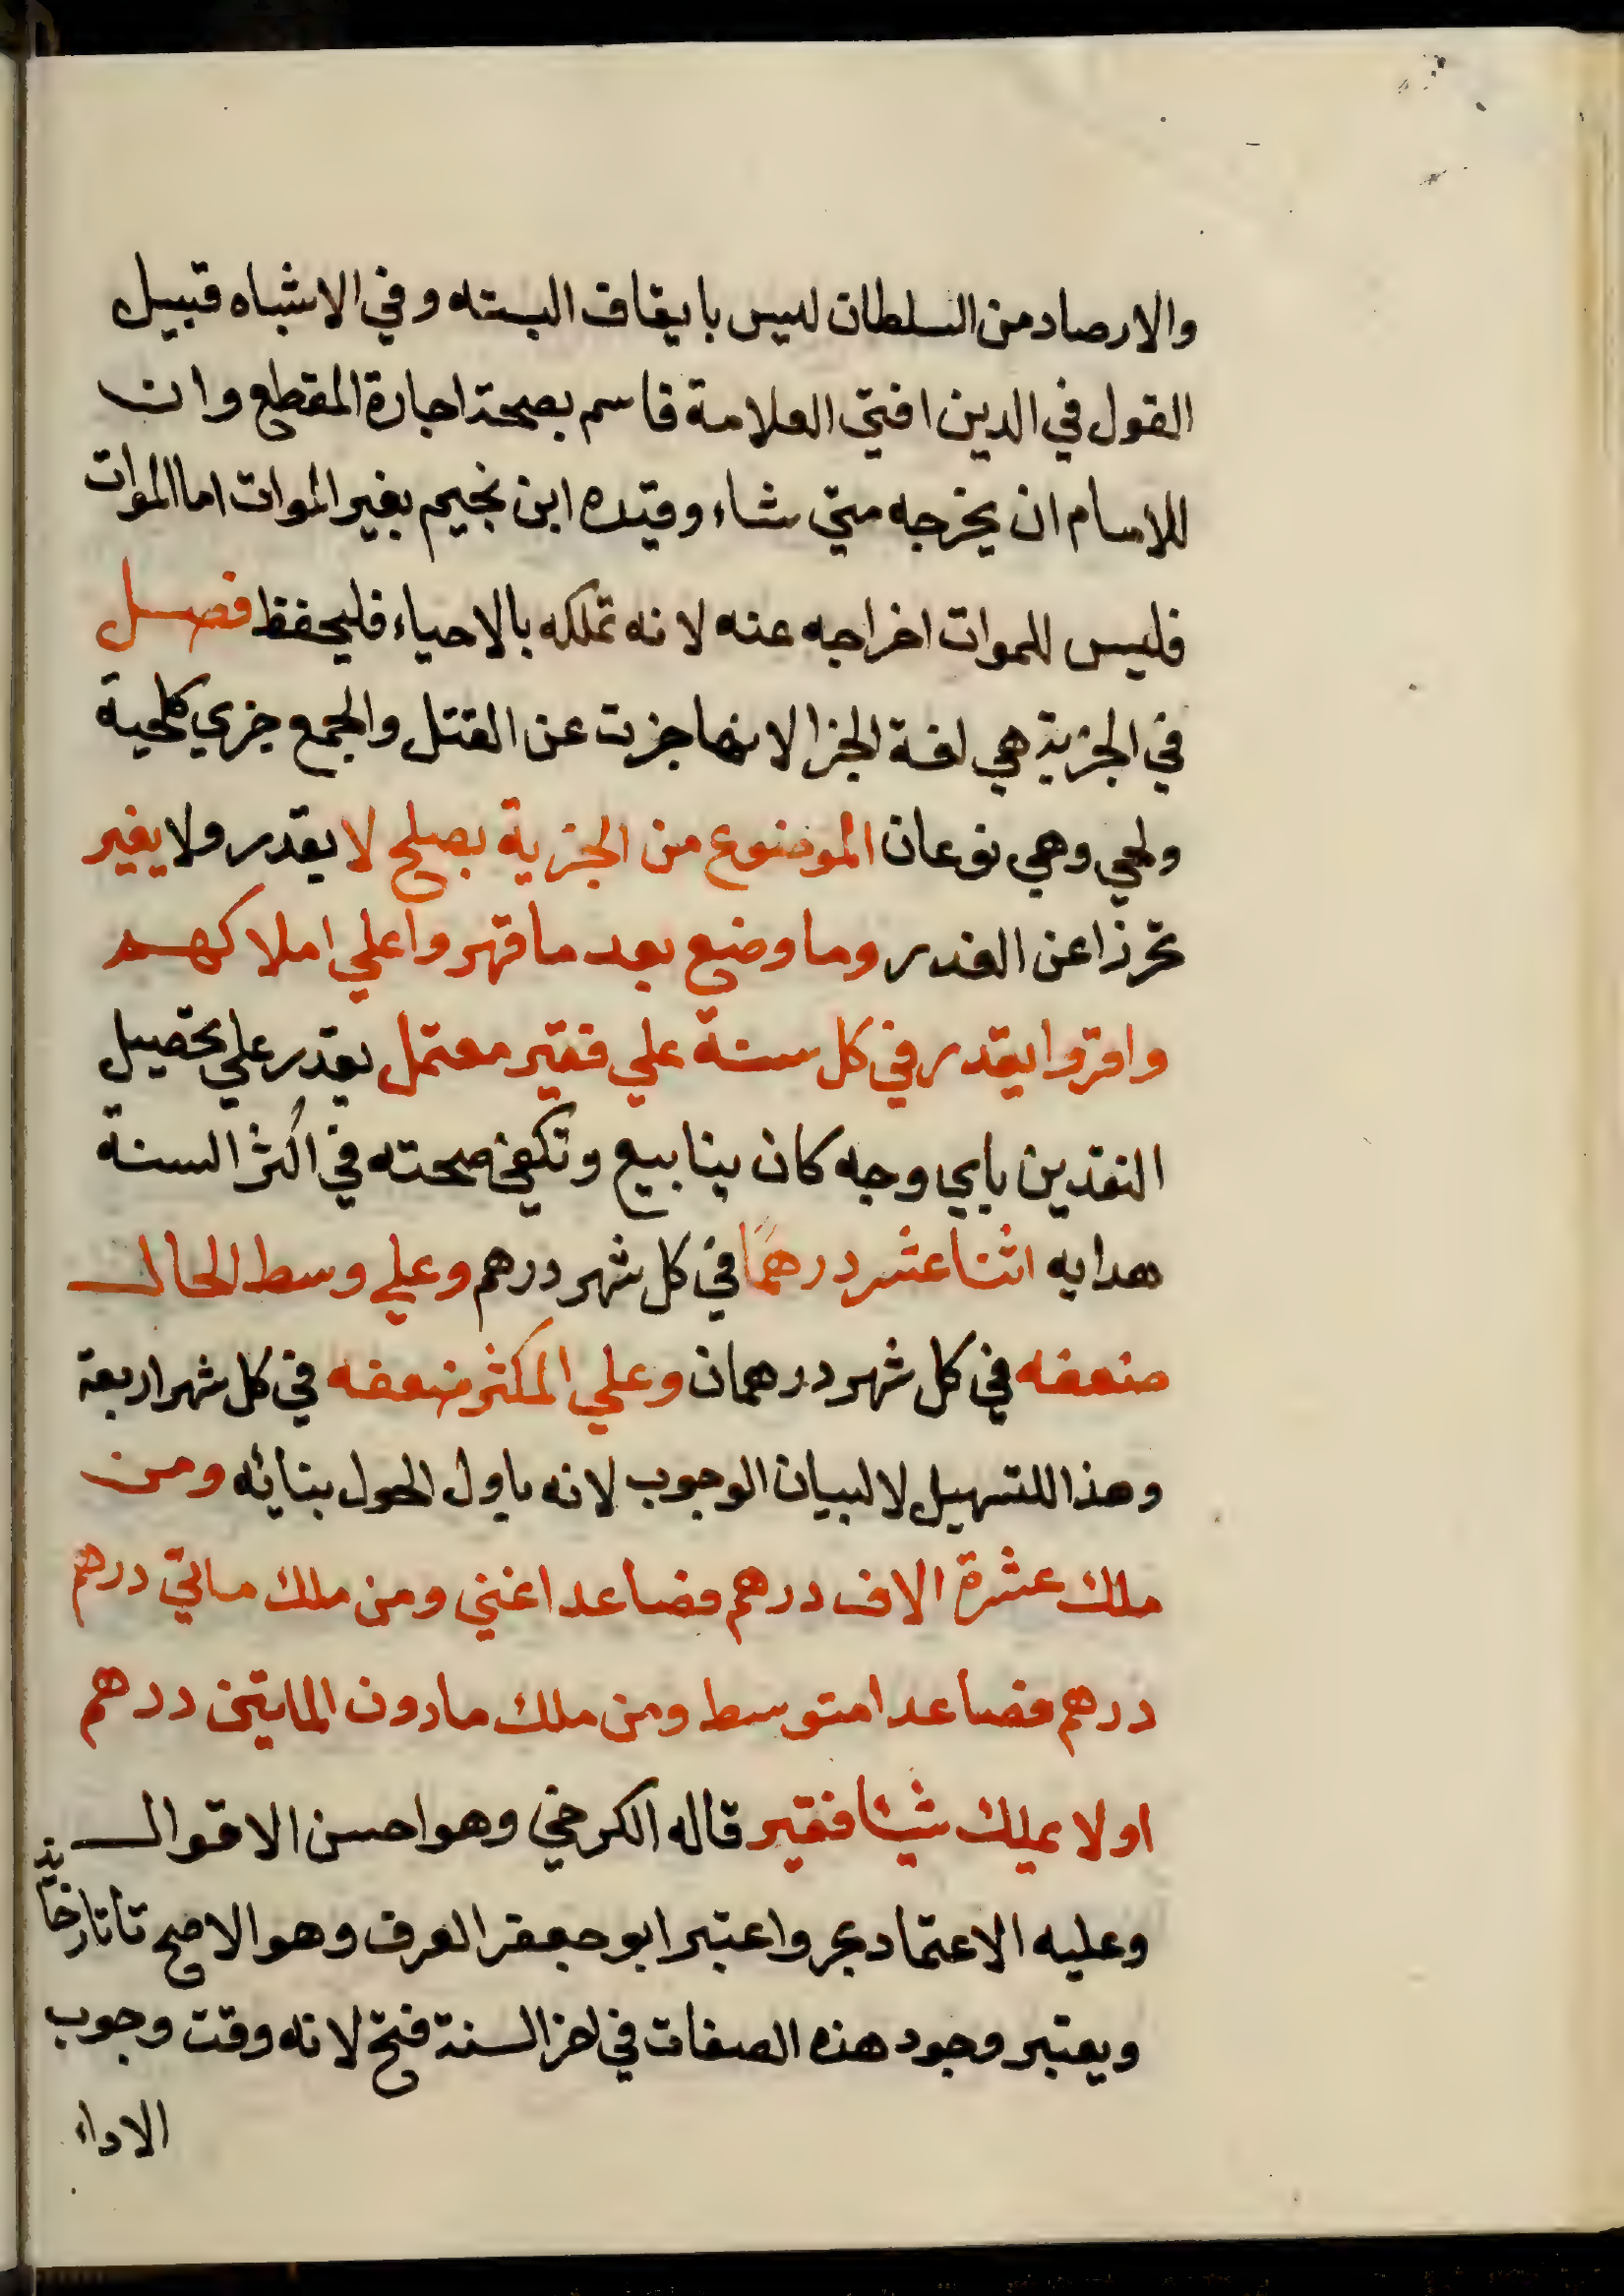 والارصاد من السلطان ليس بايقاف البته وفي الاشباه قبيل
القول في الدين افتي العلامة قاسم بصحة اجارة المقطع وان
للامام ان يخرجه متي شاء وقيده ابن نجيم بغير الموات اما الموات
فليس للموات اخراجه عنه لانه تملكه بالاحياء فليحفظ فصل
في الجزية هي لغة الجزا لانها جزت عن القتل والجمع جزي كلحية
ولحي وهي نوعان الموضوع من الجزية بصلح لا يقدر ولا يغير
تحرزا عن الغدر وما وضع بعد ما قهروا علي املاكهم
واقروا يقدر في كل سنة علي فقير معتمل يقدر علي تحصيل
النقدين باي وجه كان ينابيع وتكفي صحته في اكثر السنة
هدايه اثنا عشر درهمًا في كل شهر درهم وعلي وسط الحال
ضعفه في كل شهر درهمان وعلي المكثر ضعفه في كل شهر اربعة
وهذا للتسهيل لا لبيان الوجوب لانه باول الحول بنائه ومن
ملك عشرة الاف درهم فصاعدا غني ومن ملك مائتي درهم
درهم فصاعدا متوسط ومن ملك ما دون المايتين درهم
اولا يملك شيئا فقير قاله الكرخي وهو احسن الاقوال
وعليه الاعتماد بحر واعتبر ابو جعفر العرف وهو الاصح تاتارخانية
ويعتبر وجود هذه الصفات في اخر السنة فتح لانه وقت وجوب
الاداء